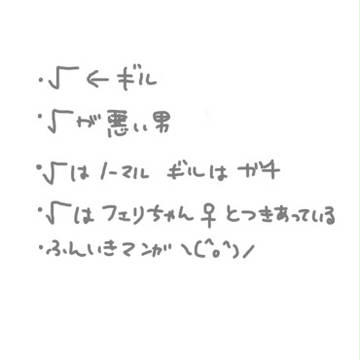 ・√ ← ギル
・√が悪い男
・√はノーマル ギルは ガチ
・√はフェリちゃん♀とつきあっている
・ふんいきマンガ \(^o^)/